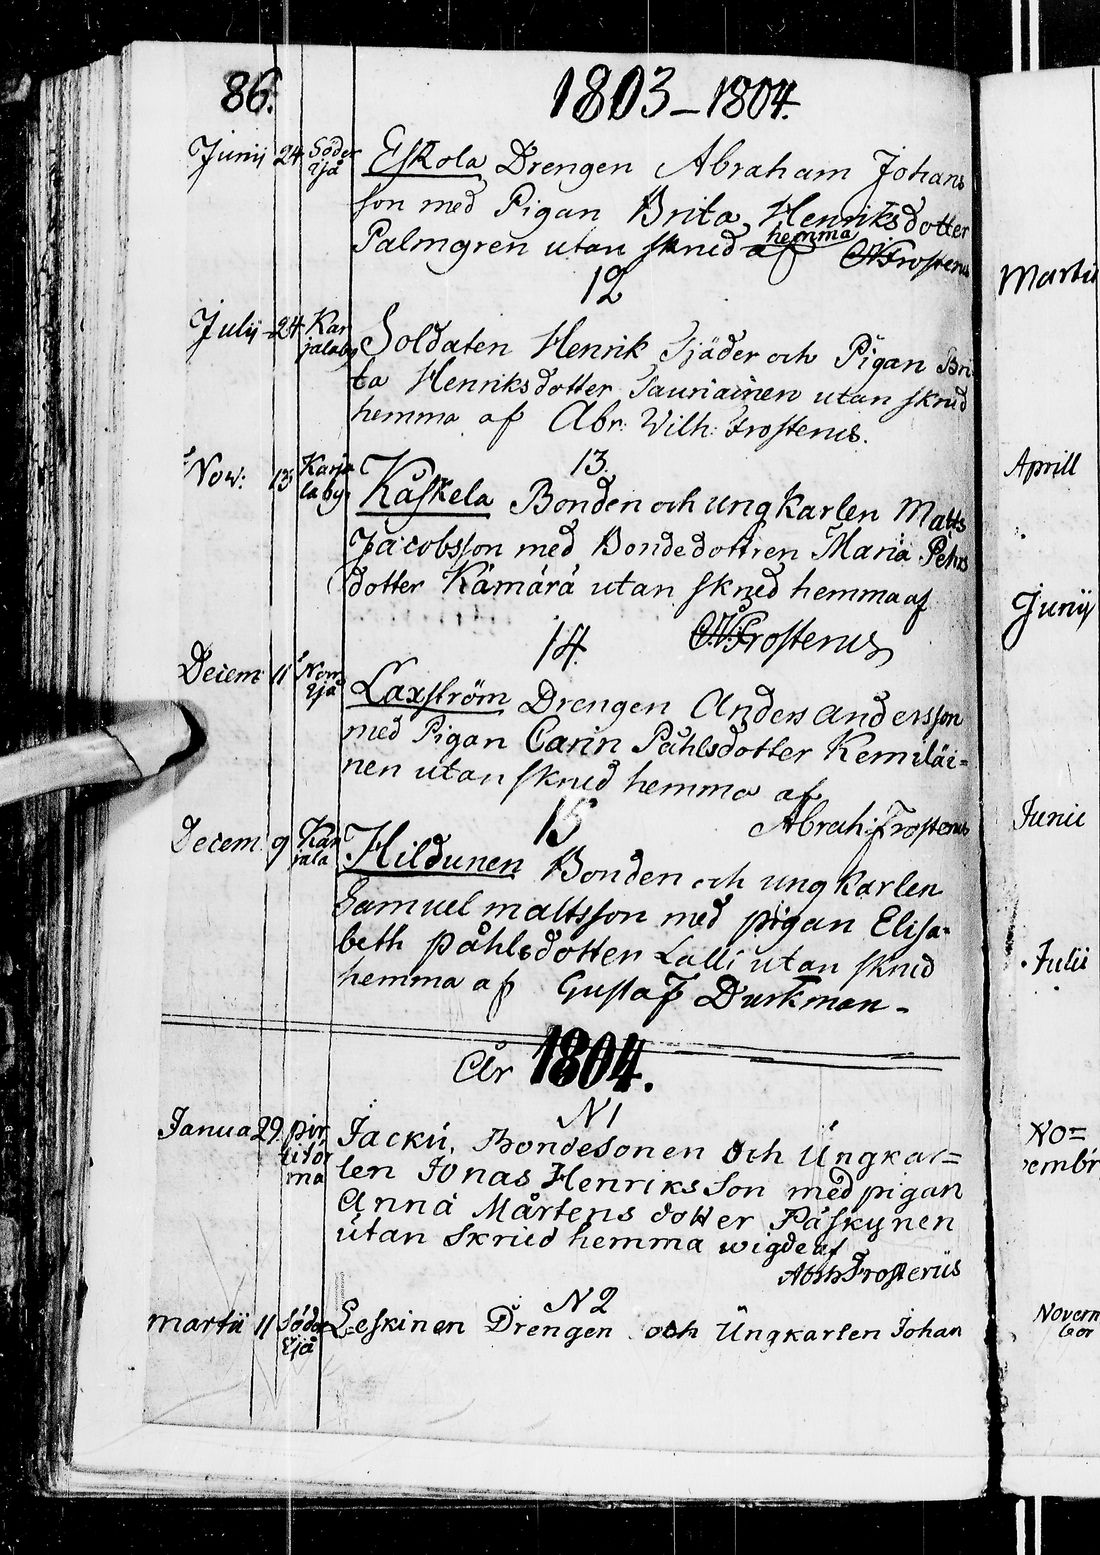 86.
1803-1804.
Junij 24. Söder Ijå Eskola Drengen Abraham Johans
son med Pigan Brita Henriksdotter
Palmgren utan skrud hemma af Frosterus
12
Julij 24. Kar jalaby Soldaten Henrik Sjäder och Pigan Bri
ta Henriksdotter Sauriainen utan skrud
hemma af Abr: Wilh: Frosterus.
13.
Nov: 13 Karja laby Kaskela Bonden och ungkarlen Matts
Jacobsson med Bondedottren Maria Pehrs
dotter Kämärä utan skrud hemma af
Frosterus
14.
Decem 11 Norr Ijå Laxström Drengen Anders andersson
med Pigan Carin Påhlsdotter Kemiläi=
nen utan skrud hemma af
15 Abrah: Frosterus
Decem 9 Kar jala Hildunen Bonden och ungkarlen
Samuel mattsson med pigan Elisa-
beth påhlsdotter Lalli utan skrud
hemma af Gustaf Durkman-
År 1804.
N1
Janua 29. pir titör ma Jacku, Bondesonen och Ungkar=
len Jonas Henriksson med pigan
Anna Mårtens dotter Påskynen
utan skrud hemma wigde af
Abrh Frosterus
N2
Martii 11 Söder Ijå Leskinen Drengen och Ungkarlen Johan
Martii
Aprill
Junij
Junii
Julii
NO=
vembr
Novem
ber